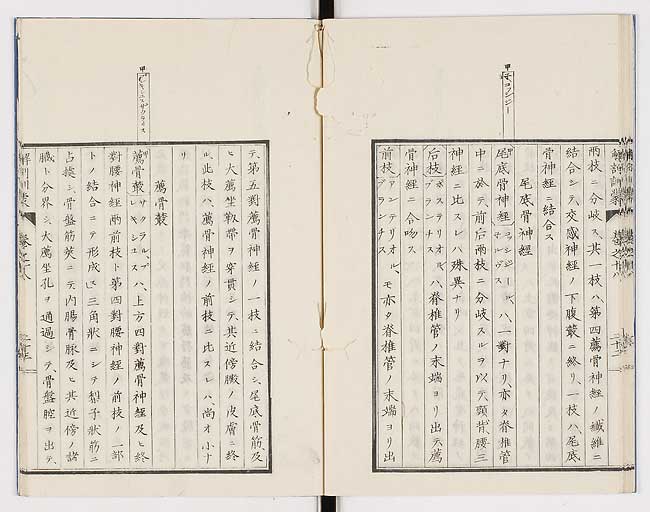 兩枝ニ分岐ス、其一枝ハ、第四薦骨神經ノ纖維ニ
結合シテ、交感神經ノ下腹叢ニ終リ、一枝ハ、尾底
骨神經ニ結合ス
尾底骨神經
尾底骨神經
ハ、一對ナリ、亦タ脊推管
中ニ於テ、前后兩枝ニ分岐スルヲ以テ、頸背腰三
神經ニ比スレハ殊異ナリ
后枝 ポステリオル、ブランチス ハ、脊推管ノ末端ヨリ出テ薦
骨神經ニ合吻ス
前枝 アンテリオル、ブランチス モ亦タ脊推管ノ末端ヨリ出
テ、第五對薦骨神經ノ一枝ニ結合シ、尾底骨筋及
ヒ大薦坐靱帶ヲ穿貫シテ、其近傍ノ皮膚ニ終
ル、此枝ハ、薦骨神經ノ前枝ニ比スレハ、尚オ小ナ
リ
薦骨叢
薦骨叢 サクラル、プレキシユス ハ、上方四對薦骨神經及ヒ終
對腰神經兩前枝ト第四對腰神經ノ前枝ノ一部
トノ結合ニテ形成ス、三角狀ニシテ梨子狀筋ニ
占據シ、骨盤筋莢ニテ、内腸骨脉及ヒ其近傍ノ諸
臟ト分界シ、大薦坐孔ヲ通過シテ、骨盤腔ヲ出テ、